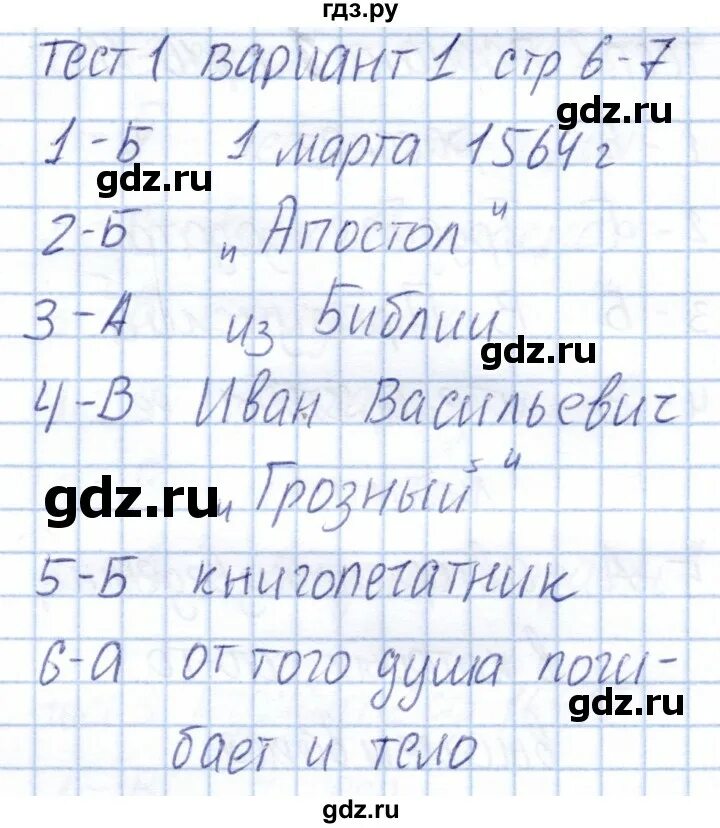 гдз.ру
Тест 1 вариант 1 стр 6-7
gdz.ru
1-Б 1 марта 1564 г
gdz.ru
2-Б „Апостол"
3-А из Библии
gdz.ru
4-В Иван Васильевич
gdz.ru „Грозный"
5-Б книгопечатник
6-А от того душа поги-
gdz.ru
бает и тело
gdz.ru